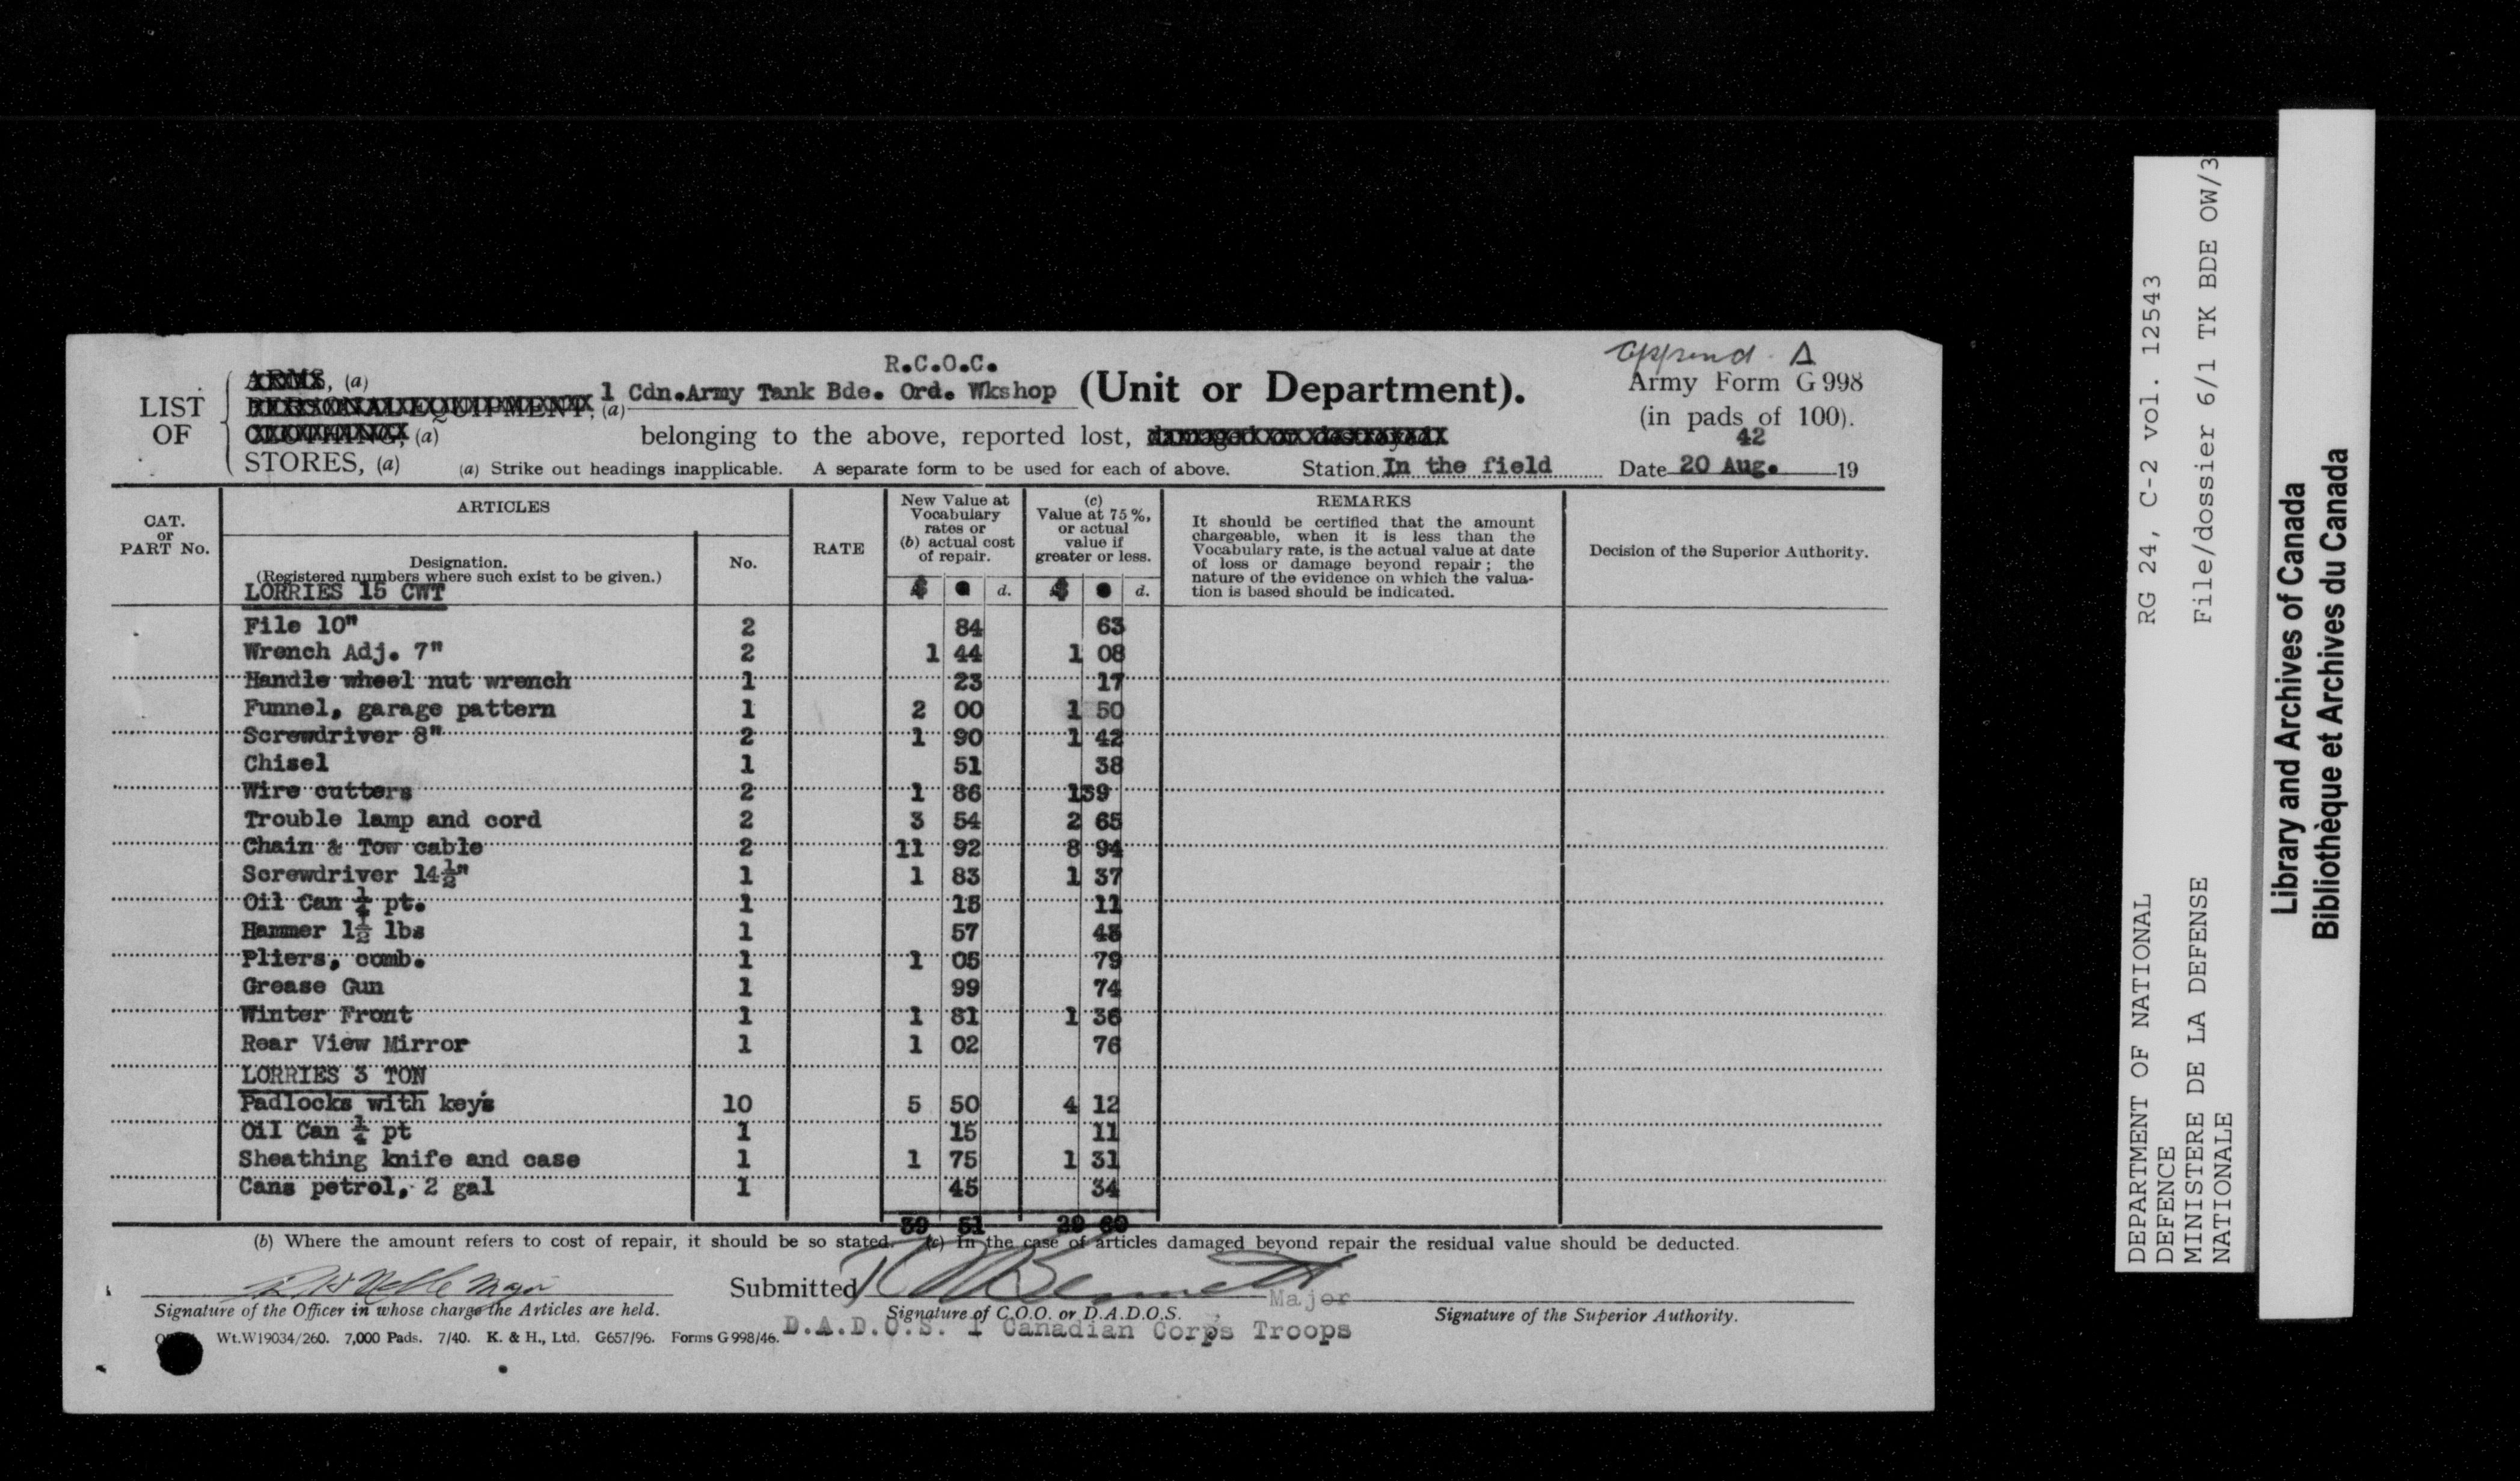 append. A
R.C.O.C.
LIST OF
ARMS, (a)
PERSONAL EQUIPMENT, (a)
CLOTHING, (a)
STORES, (a)
1 Cdn.Army Tank Bde. Ord. Wkshop (Unit or Department).
Army Form G 998
(in pads of 100).
belonging to the above, reported lost, damaged or destroyed
(a) Strike out headings inapplicable. A separate form to be used for each of above.
Station In the field Date 20 Aug. 19 42
CAT. or PART No.
ARTICLES
Designation.
(Registered numbers where such exist to be given.)
No.
RATE
New Value at Vocabulary rates or (b) actual cost of repair.
(c) Value at 75%, or actual value if greater or less.
REMARKS
It should be certified that the amount
chargeable, when it is less than the
Vocabulary rate, is the actual value at date
of loss or damage beyond repair; the
nature of the evidence on which the valua-
tion is based should be indicated.
Decision of the Superior Authority.
$ d. $ d.
LORRIES 15 CWT
File 10" 2 84 63
Wrench Adj. 7" 2 1 44 1 08
Handle wheel nut wrench 1 23 17
Funnel, garage pattern 1 2 00 1 50
Screwdriver 8" 2 1 90 1 42
Chisel 1 51 38
Wire cutters 2 1 86 139
Trouble lamp and cord 2 3 54 2 65
Chain & Tow cable 2 11 92 8 94
Screwdriver 14½" 1 1 83 1 37
Oil Can ¼ pt. 1 15 11
Hammer 1½ lbs 1 57 43
Pliers, comb. 1 1 05 79
Grease Gun 1 99 74
Winter Front 1 1 81 1 36
Rear View Mirror 1 1 02 76
LORRIES 3 TON
Padlocks with keys 10 5 50 4 12
Oil Can ¼ pt 1 15 11
Sheathing knife and case 1 1 75 1 31
Cans petrol, 2 gal 1 45 34
39 51 29 60
(b) Where the amount refers to cost of repair, it should be so stated. (c) In the case of articles damaged beyond repair the residual value should be deducted.
Major
Signature of the Officer in whose charge the Articles are held.
Submitted Bennett Major
Signature of C.O.O. or D.A.D.O.S.
D.A.D.O.S. 1 Canadian Corps Troops
Signature of the Superior Authority.
Wt.W19034/260. 7,000 Pads. 7/40. K. & H., Ltd. G657/96. Forms G 998/46.
DEPARTMENT OF NATIONAL
DEFENCE
MINISTERE DE LA DEFENSE
NATIONALE
RG 24, C-2 vol. 12543
File/dossier 6/1 TK BDE OW/3
Library and Archives of Canada
Bibliothèque et Archives du Canada